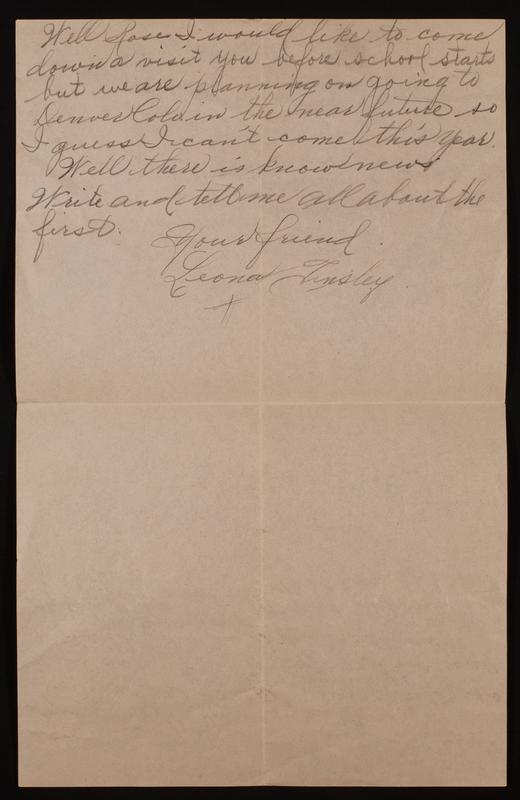 Well Rose I would like to come
down a visit you before school starts
but we are planning on going to
Denver Colo in the near future so
I guess I can't come this year.
Well there is know news
Write and tell me all about the
first.
Your friend.
Leona Tinsley.